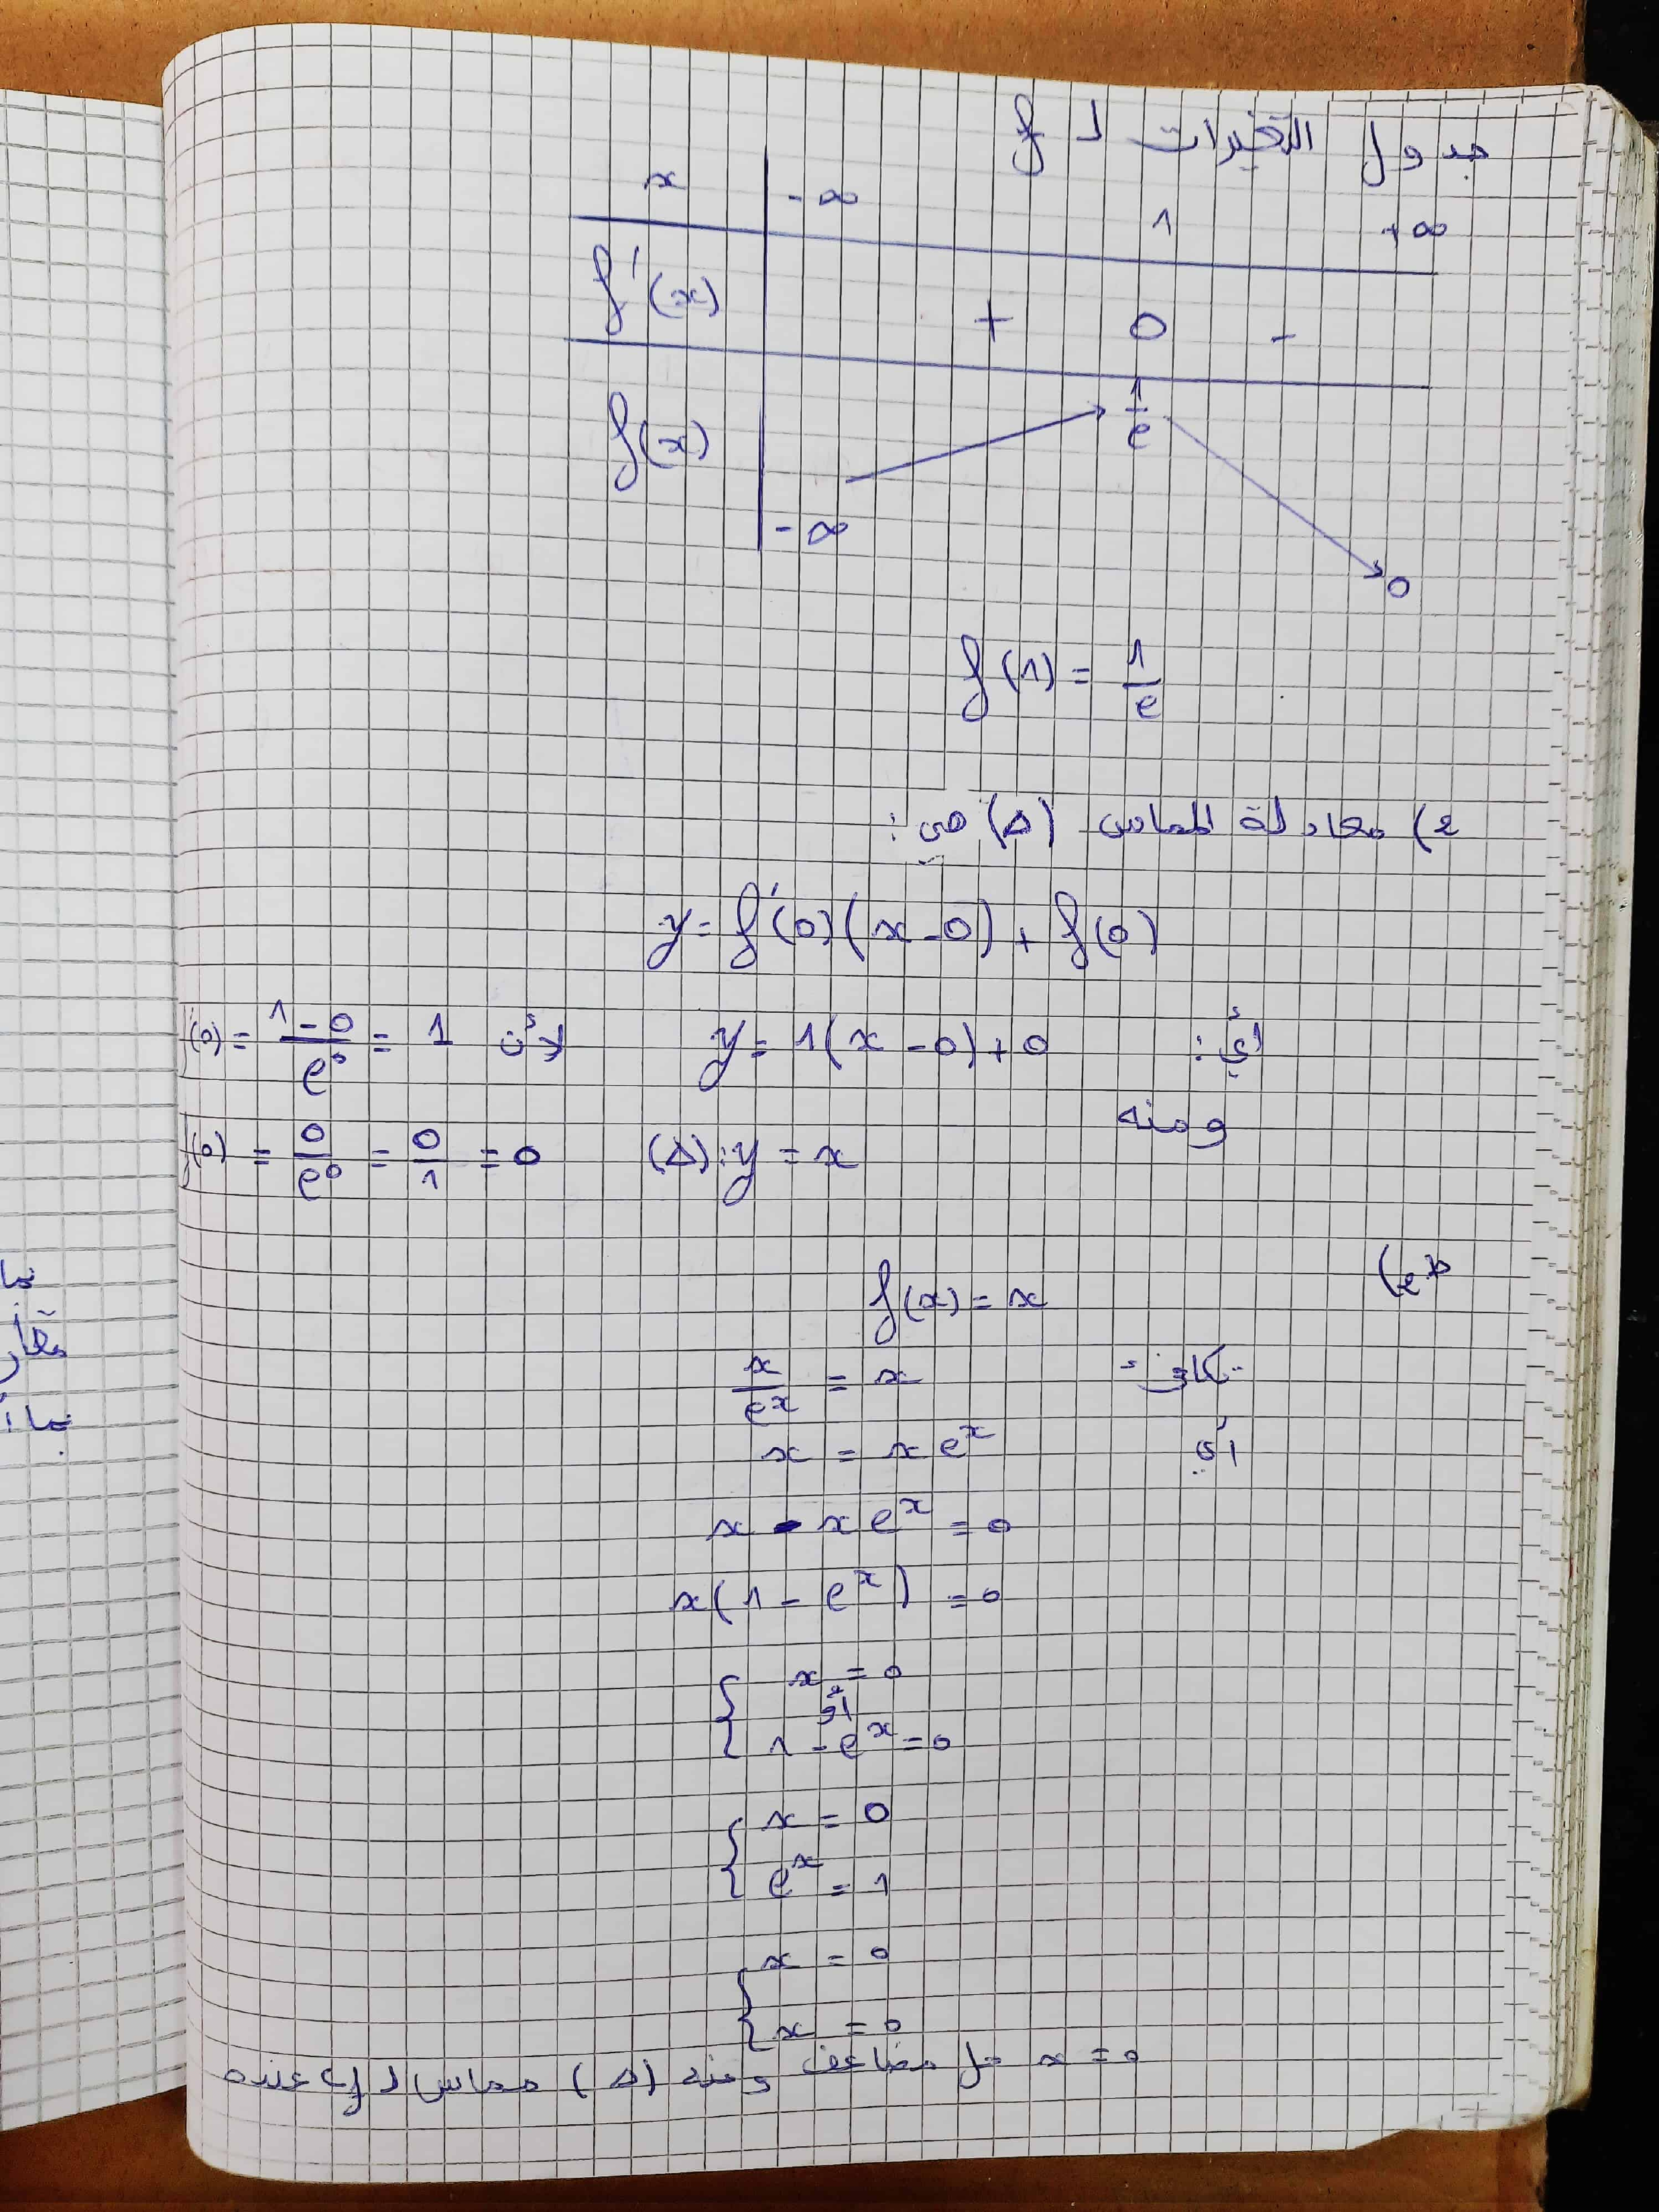 جدول التغيرات لـ f
x | -∞ 1 +∞
f'(x) + 0 -
f(x) -∞ 1/e 0
f(1) = 1/e
2) معادلة المماس (Δ) هي :
y = f'(0)(x-0) + f(0)
أي : y = 1(x-0)+0 لأن (0) = (1-0)/e^0 = 1
ومنه
(Δ): y = x (0) = 0/e^0 = 0/1 = 0
f(x) = x
تكافئ x/e^x = x
أي x = x e^x
x - x e^x = 0
x(1 - e^x) = 0
{ x = 0
أو
1 - e^x = 0
{ x = 0
e^x = 1
{ x = 0
x = 0
x = 0 حل مضاعف ومنه (Δ) مماس لـ عند